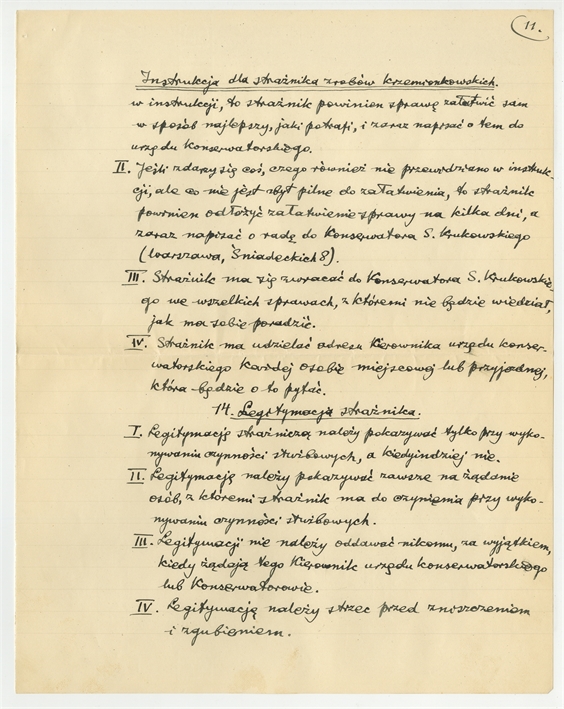 11.
Instrukcja dla strażnika zrobów krzemionkowskich.
w instrukcji, to strażnik powinien sprawę załatwić sam
w sposób najlepszy, jaki potrafi, i zaraz napisać o tem do
urzędu Konserwatorskiego.
II. Jeśli zdarzy się coś, czego również nie przewidziano w instruk-
cji, ale co nie jest zbyt pilne do załatwienia, to strażnik
powinien odłożyć załatwienie sprawy na kilka dni, a
zaraz napisać o radę do Konserwatora S. Krukowskiego
(Warszawa, Śniadeckich 8).
III. Strażnik ma się zwracać do Konserwatora S. Krukowskie-
go we wszelkich sprawach, z któremi nie będzie wiedział,
jak ma sobie poradzić.
IV. Strażnik ma udzielać adresu Kierownika urzędu konser-
watorskiego każdej osobie miejscowej lub przyjezdnej,
która będzie o to pytać.
14. Legitymacja strażnika.
I. Legitymację strażniczą należy pokazywać tylko przy wyko-
nywaniu czynności służbowych, a kiedyindziej nie.
II. Legitymację należy pokazywać zawsze na żądanie
osób, z któremi strażnik ma do czynienia przy wyko-
nywaniu czynności służbowych.
III. Legitymacji nie należy oddawać nikomu, za wyjątkiem,
kiedy żądają tego Kierownik urzędu konserwatorskiego
lub Konserwatorowie.
IV. Legitymację należy strzec przed zniszczeniem
i zgubieniem.